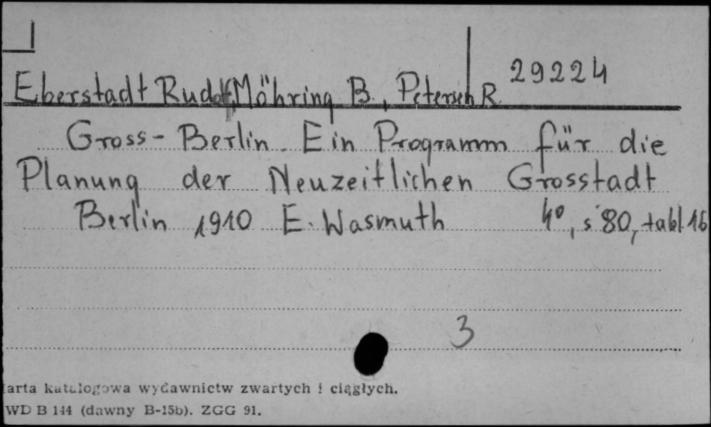 29224
Eberstadt Rudolf, Möhring B., Petersen R.
Gross-Berlin. Ein Programm für die
Planung der Neuzeitlichen Grosstadt
Berlin 1910 E. Wasmuth 4°, s 80, tabl 16
3
arta katalogowa wydawnictw zwartych i ciągłych.
WD B 144 (dawny B-15b). ZGG 91.